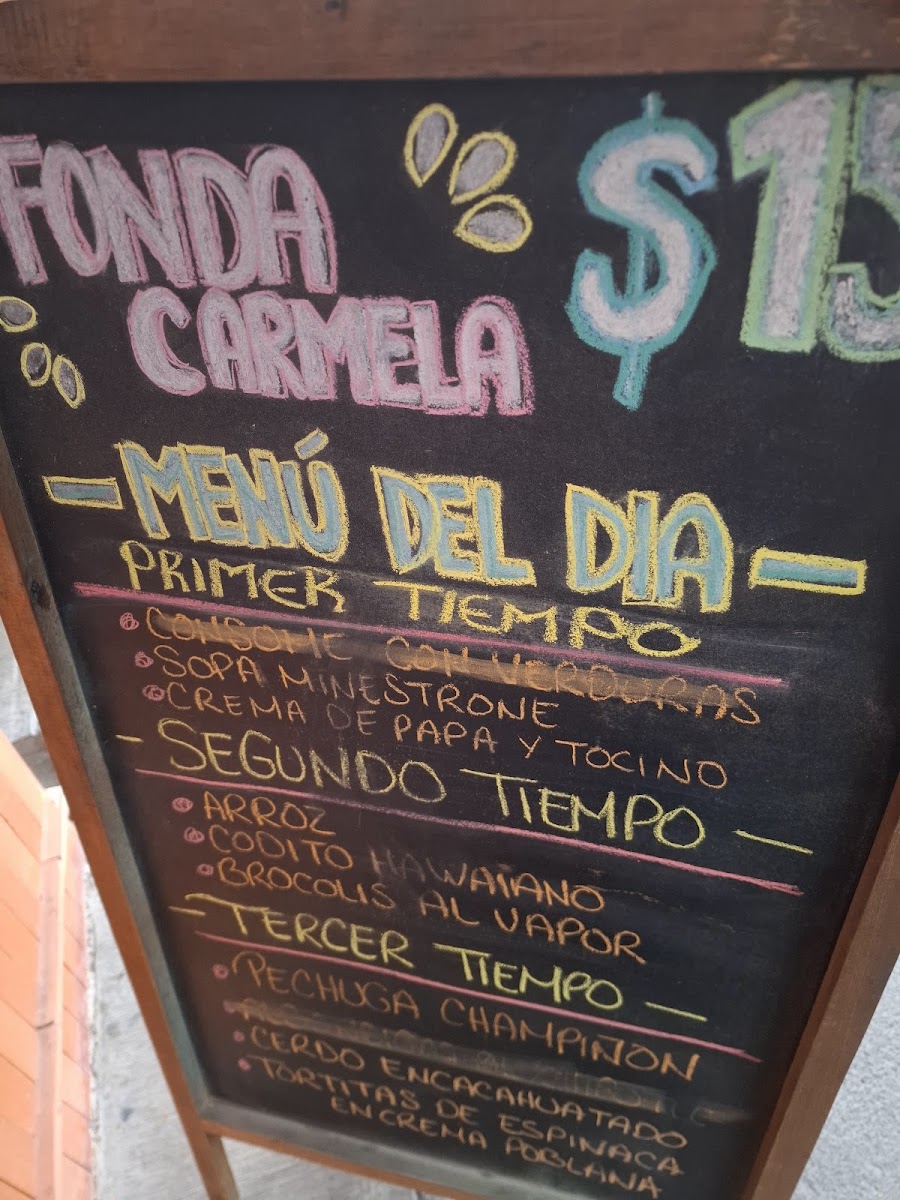 FONDA
CARMELA
$15
- MENÚ DEL DIA -
PRIMER TIEMPO
CONSOME CON VERDURAS
SOPA MINESTRONE
CREMA DE PAPA Y TOCINO
- SEGUNDO TIEMPO -
ARROZ
CODITO HAWAIANO
BROCOLIS AL VAPOR
- TERCER TIEMPO -
PECHUGA CHAMPIÑON
CERDO ENCACAHUATADO
TORTITAS DE ESPINACA
EN CREMA POBLANA